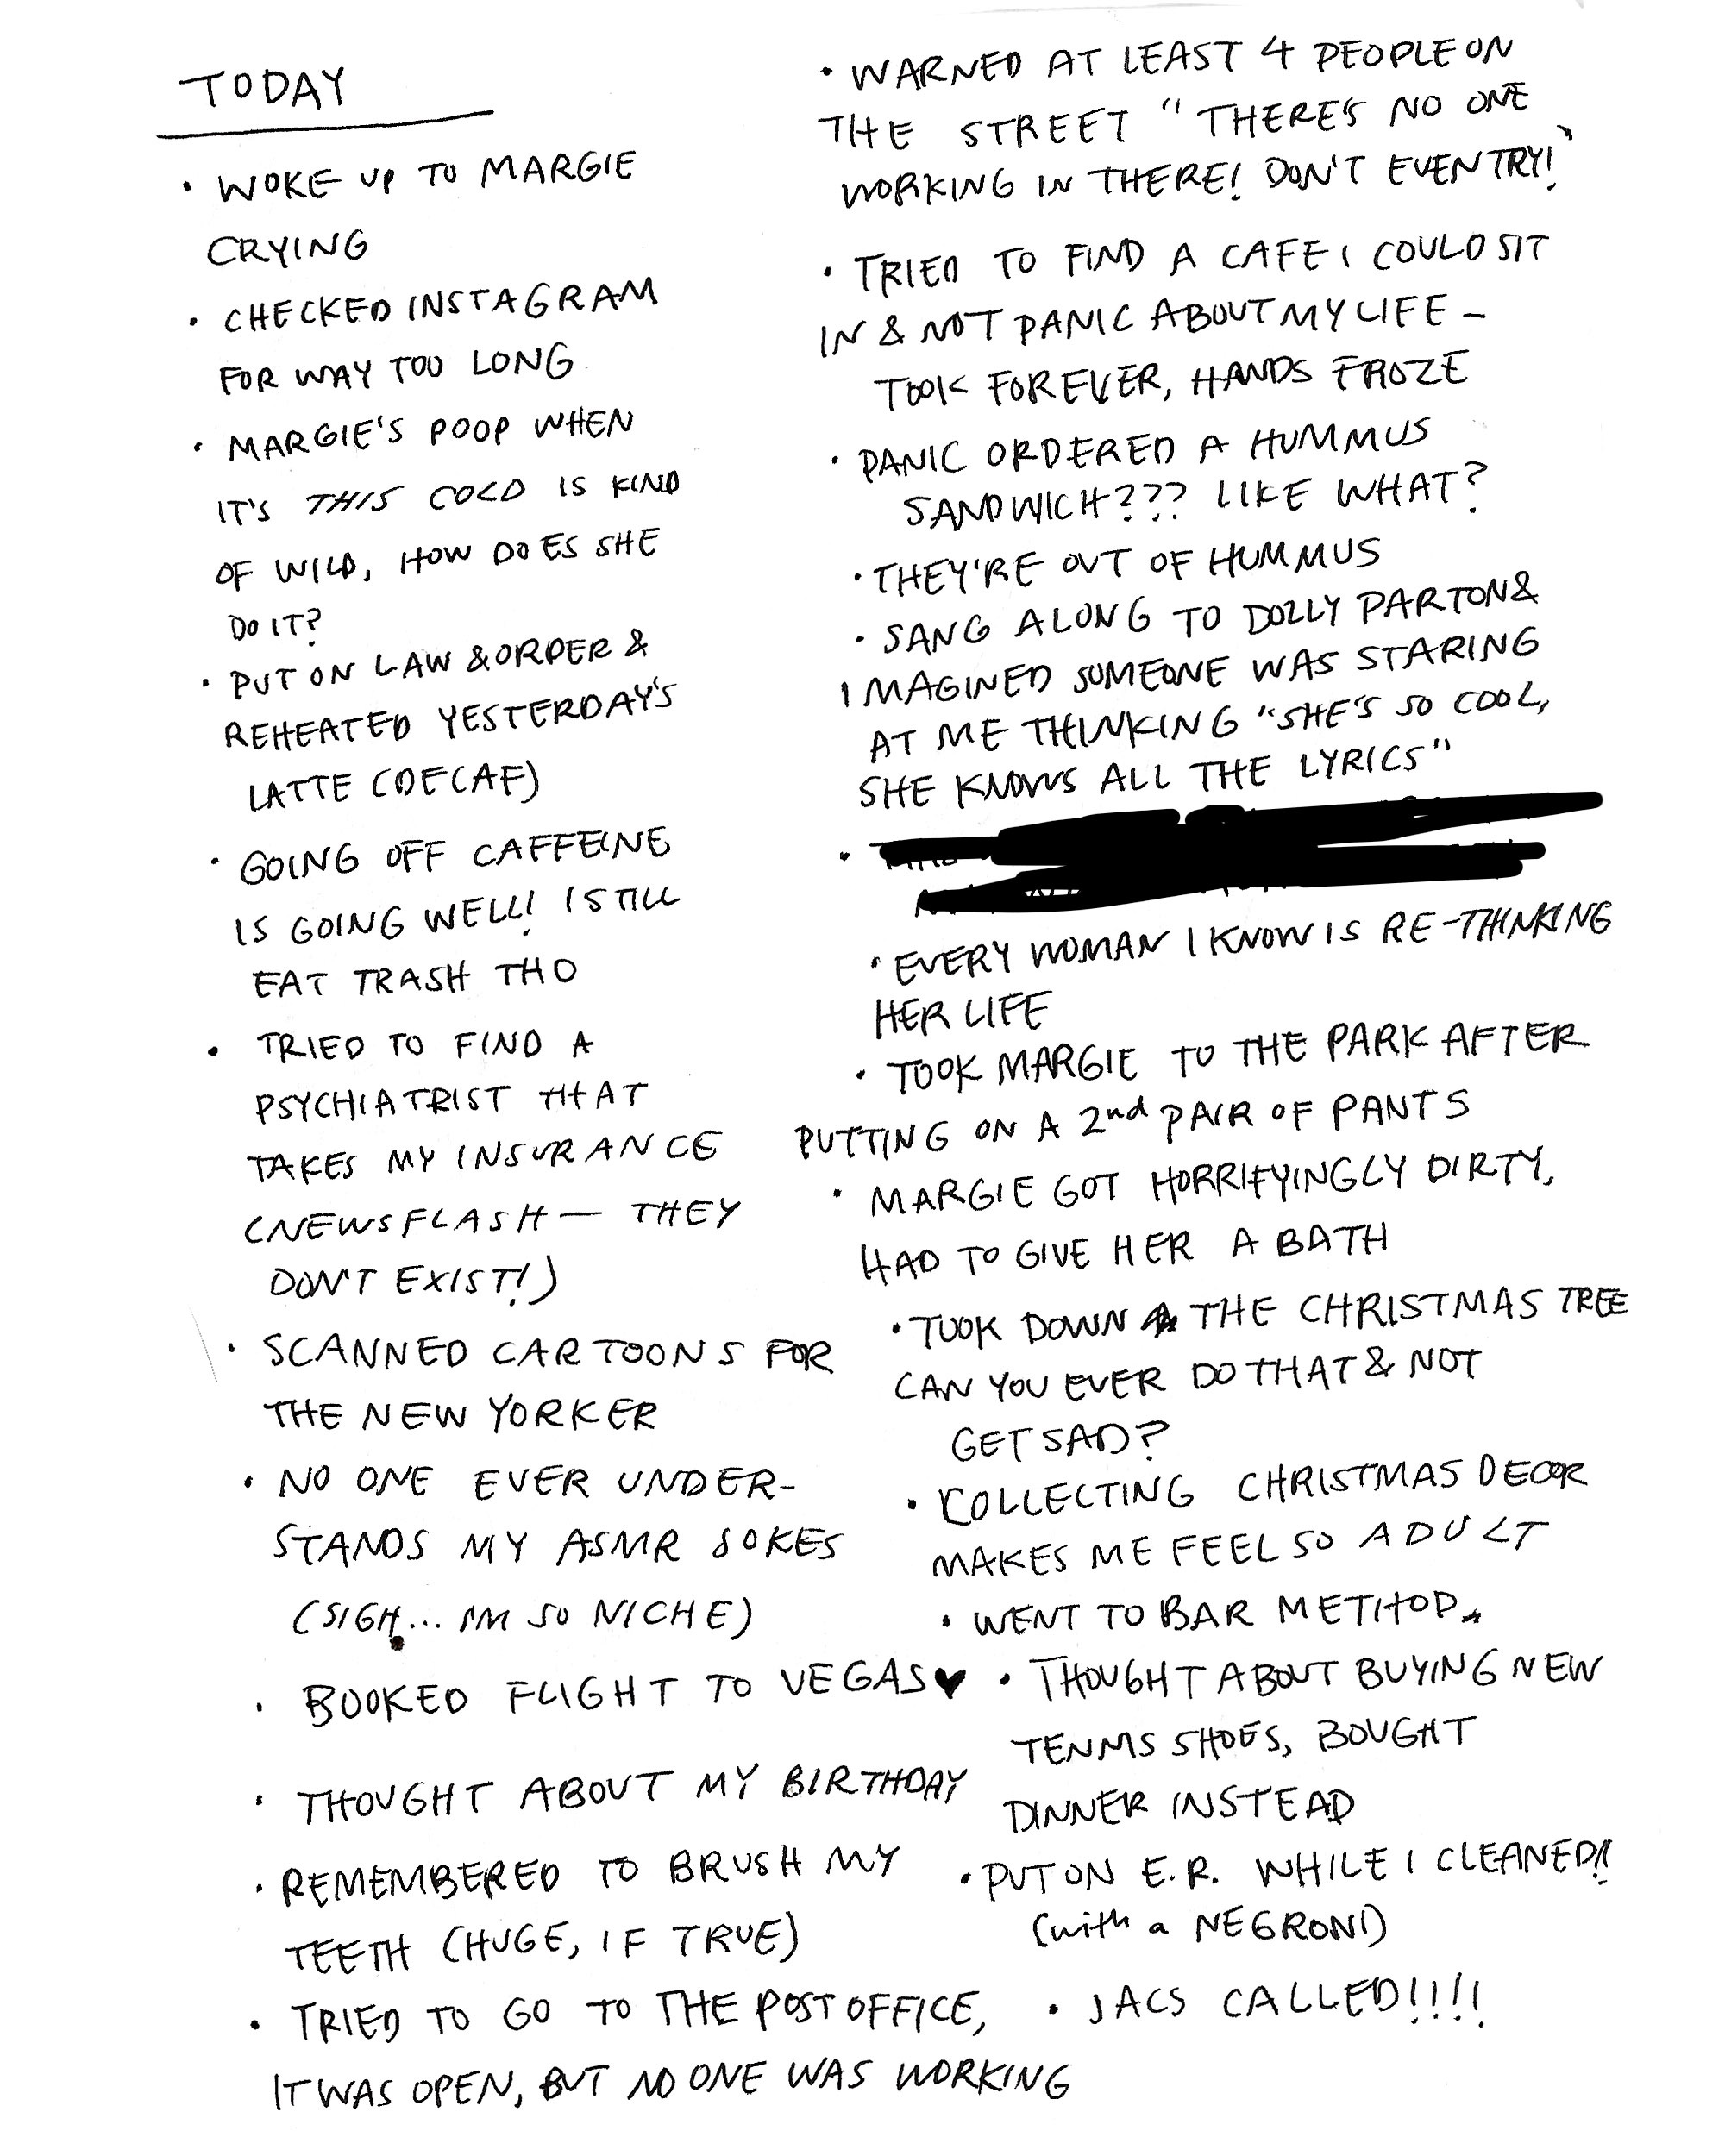 TODAY
• WOKE UP TO MARGIE
CRYING
• CHECKED INSTAGRAM
FOR WAY TOO LONG
• MARGIE'S POOP WHEN
IT'S THIS COLD IS KIND
OF WILD, HOW DOES SHE
DO IT?
• PUT ON LAW & ORDER &
REHEATED YESTERDAY'S
LATTE (DECAF)
• GOING OFF CAFFEINE
IS GOING WELL! I STILL
EAT TRASH THO
• TRIED TO FIND A
PSYCHIATRIST THAT
TAKES MY INSURANCE
(NEWSFLASH — THEY
DON'T EXIST!)
• SCANNED CARTOONS FOR
THE NEW YORKER
• NO ONE EVER UNDER-
STANDS MY ASMR JOKES
(SIGH... I'M SO NICHE)
• BOOKED FLIGHT TO VEGAS ♥
• THOUGHT ABOUT MY BIRTHDAY
• REMEMBERED TO BRUSH MY
TEETH (HUGE, IF TRUE)
• TRIED TO GO TO THE POST OFFICE,
IT WAS OPEN, BUT NO ONE WAS WORKING
• WARNED AT LEAST 4 PEOPLE ON
THE STREET "THERE'S NO ONE
WORKING IN THERE! DON'T EVEN TRY!"
• TRIED TO FIND A CAFE I COULD SIT
IN & NOT PANIC ABOUT MY LIFE –
TOOK FOREVER, HANDS FROZE
• PANIC ORDERED A HUMMUS
SANDWICH??? LIKE WHAT?
• THEY'RE OUT OF HUMMUS
• SANG ALONG TO DOLLY PARTON &
IMAGINED SOMEONE WAS STARING
AT ME THINKING "SHE'S SO COOL,
SHE KNOWS ALL THE LYRICS"
•
• EVERY WOMAN I KNOW IS RE-THINKING
HER LIFE
• TOOK MARGIE TO THE PARK AFTER
PUTTING ON A 2nd PAIR OF PANTS
• MARGIE GOT HORRIFYINGLY DIRTY,
HAD TO GIVE HER A BATH
• TOOK DOWN THE CHRISTMAS TREE
CAN YOU EVER DO THAT & NOT
GET SAD?
• COLLECTING CHRISTMAS DECOR
MAKES ME FEEL SO ADULT
• WENT TO BAR METHOD.
• THOUGHT ABOUT BUYING NEW
TENNIS SHOES, BOUGHT
DINNER INSTEAD
• PUT ON E.R. WHILE I CLEANED!!
(with a NEGRONI)
• JACS CALLED!!!!